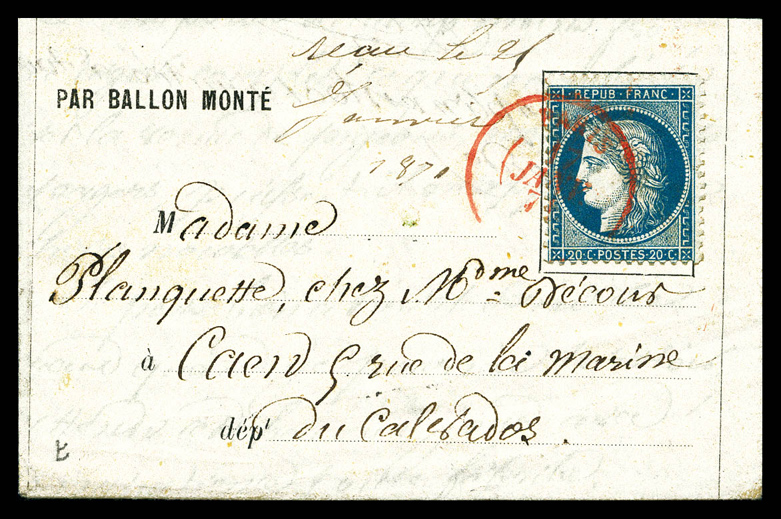 reçu le 25
PAR BALLON MONTÉ
Janvier
1870
REPUB · FRANC
JANV
20 · C · POSTES · 20 · C ·
Madame
Planquette, chez Mdme Décour
à Caen 5 rue de la marine
dépt du Calvados.